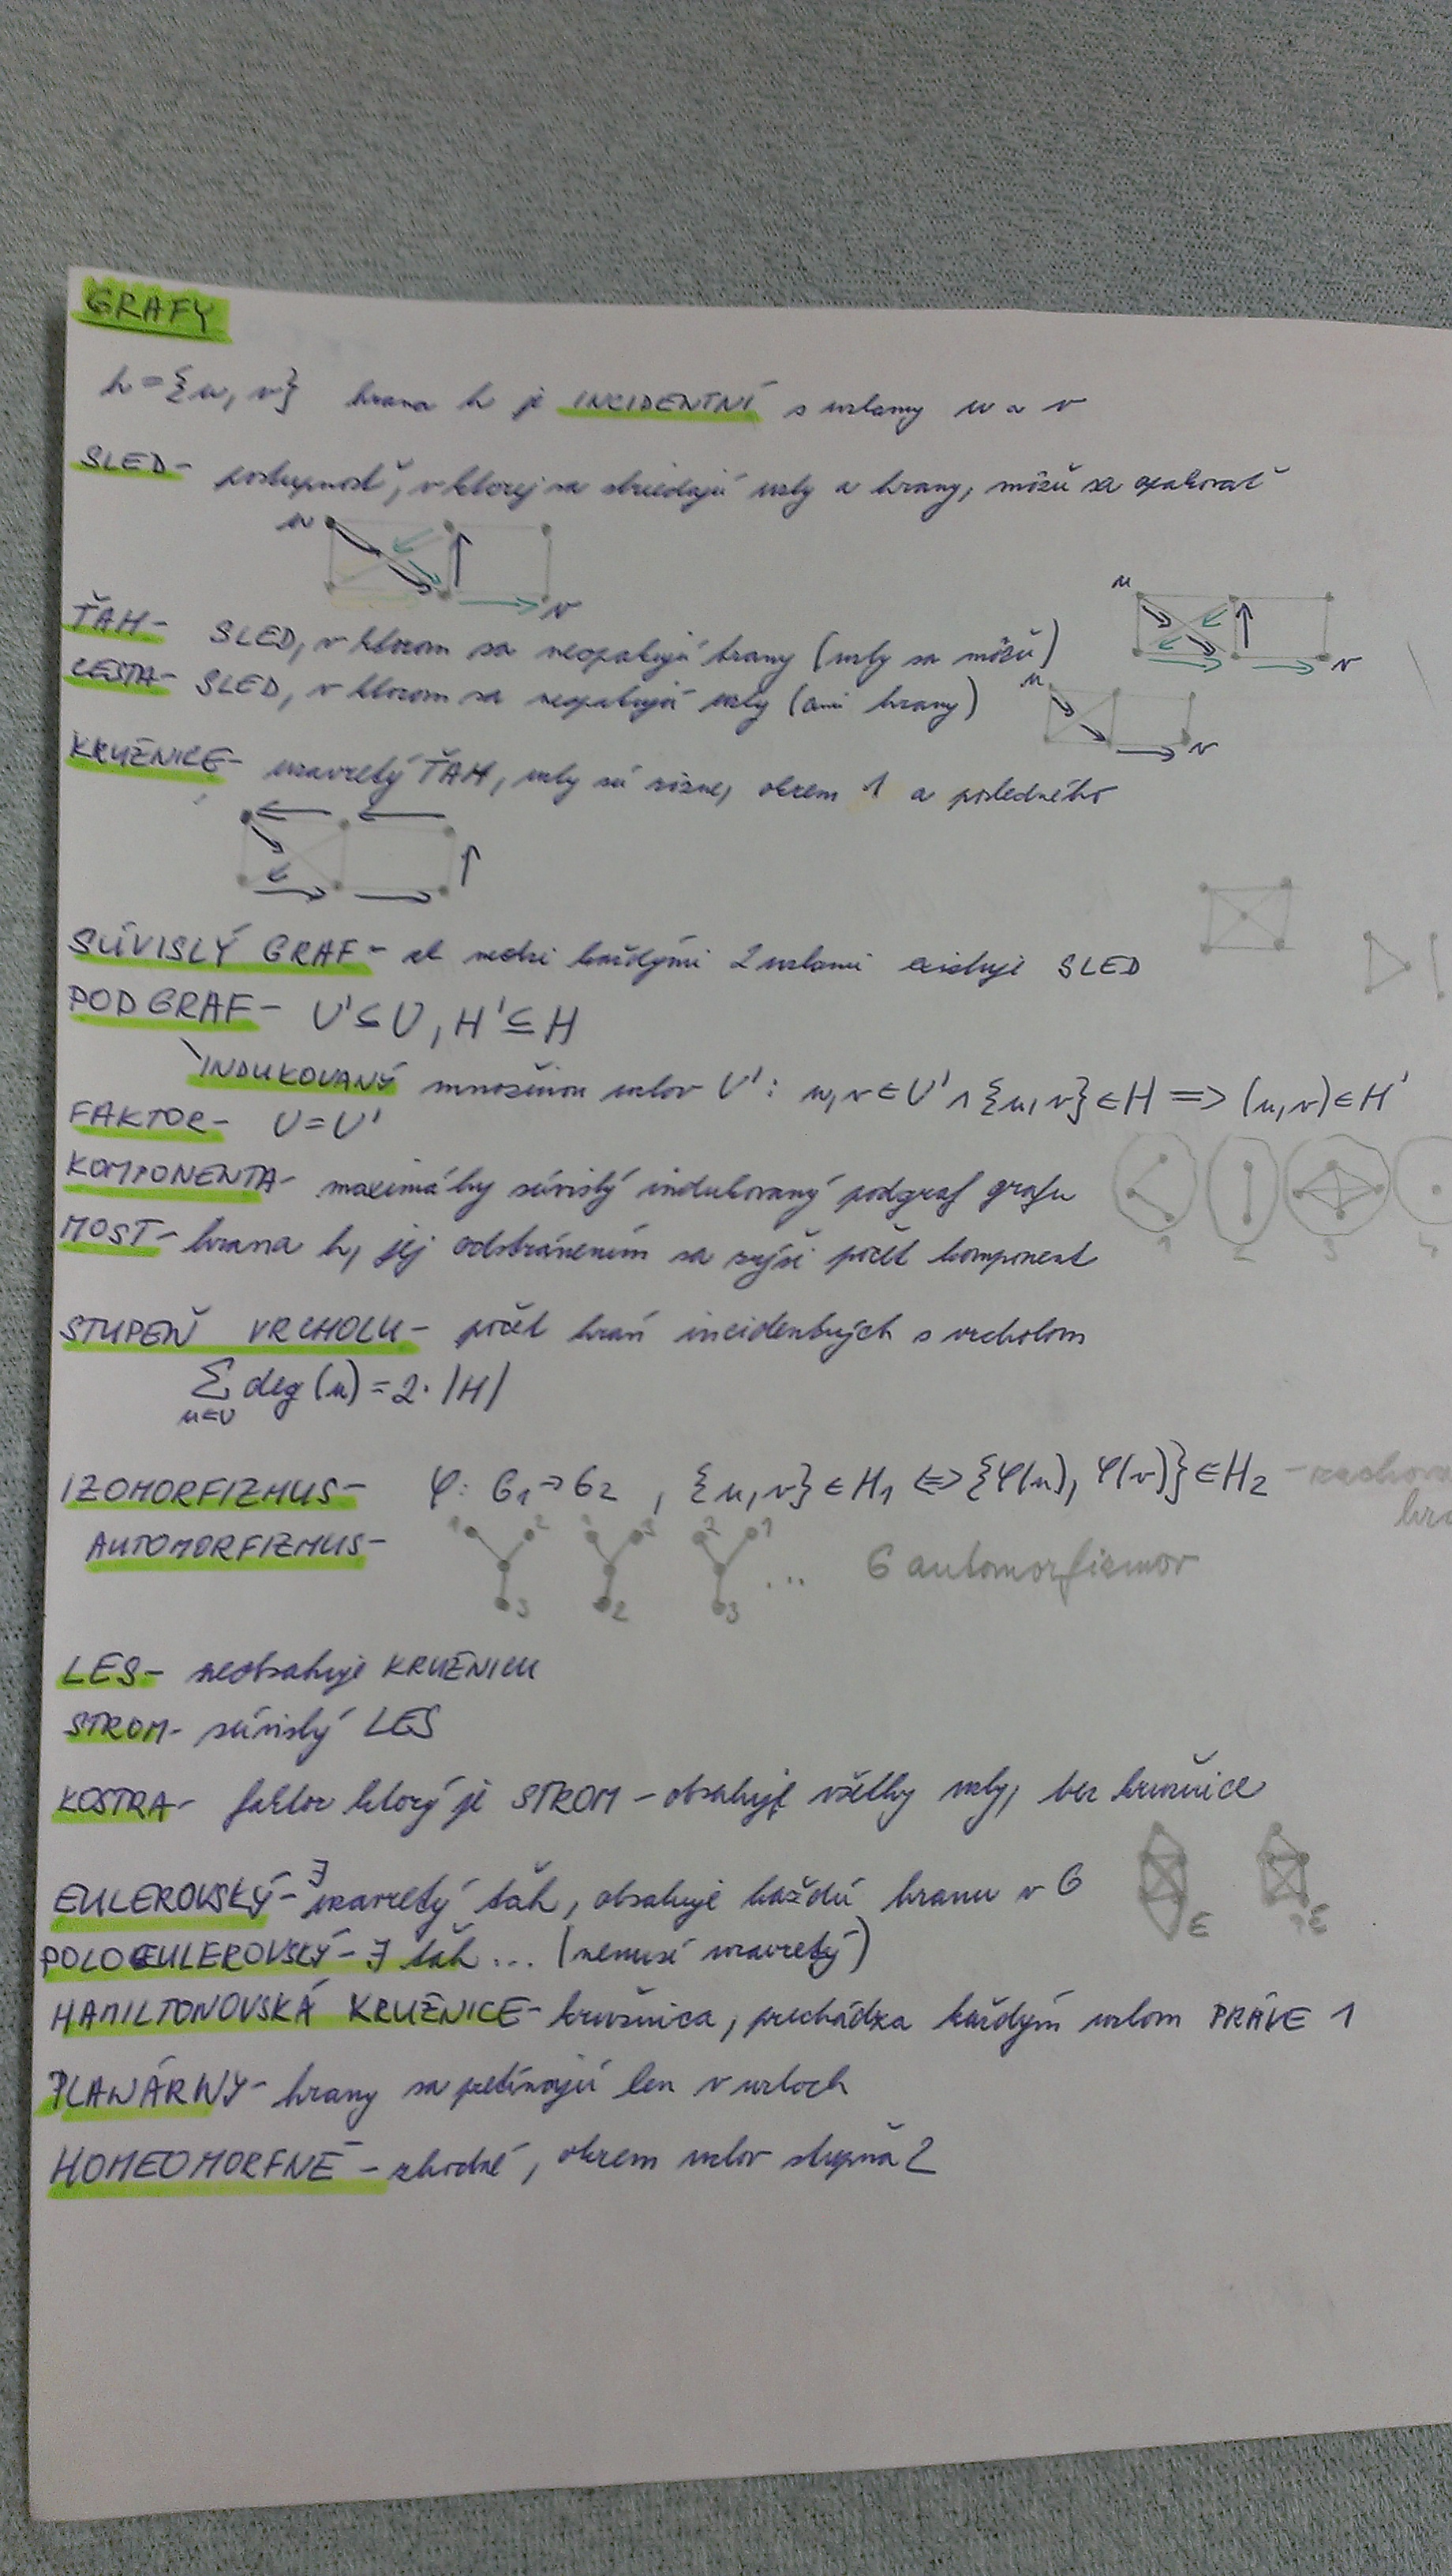 GRAFY
h = {u, v} hrana h je INCIDENTNÍ s uzlamy u a v
SLED - postupnosť, v ktorej sa striedajú uzly a hrany, môžu sa opakovať
u
v
u
ŤAH - SLED, v ktorom sa neopakujú hrany (uzly sa môžu)
v
CESTA - SLED, v ktorom sa neopakujú uzly (ani hrany)
u
v
KRUŽNICE - uzavretý ŤAH, uzly sú rôzne, okrem 1 a posledného
SÚVISLÝ GRAF - ak medzi každými 2 uzlami existuje SLED
PODGRAF - U' ⊆ U, H' ⊆ H
INDUKOVANÝ množinou uzlov U': u, v ∈ U' ∧ {u, v} ∈ H => (u, v) ∈ H'
FAKTOR - U = U'
KOMPONENTA - maximálny súvislý indukovaný podgraf grafu
1 2 3 4
MOST - hrana h, jej odstránením sa zvýši počet komponent
STUPEŇ VRCHOLU - počet hrán incidentných s vrcholom
∑ deg(u) = 2·|H|
u∈U
IZOMORFIZMUS - φ: G1 → G2, {u, v} ∈ H1 <=> {φ(u), φ(v)} ∈ H2
AUTOMORFIZMUS -
1 2 3 1 3 2 2 1 3 ... 6 automorfizmov
LES - neobsahuje KRUŽNICU
STROM - súvislý LES
KOSTRA - faktor ktorý je STROM - obsahuje všetky uzly, bez kružnice
EULEROVSKÝ - ∃ uzavretý ťah, obsahuje každú hranu v G
E ¬E
POLOEULEROVSKÝ - ∃ ťah ... (nemusí uzavretý)
HAMILTONOVSKÁ KRUŽNICE - kružnica, prechádza každým uzlom PRÁVE 1
PLANÁRNY - hrany sa pretínajú len v uzloch
HOMEOMORFNÉ - zhodné, okrem uzlov stupňa 2